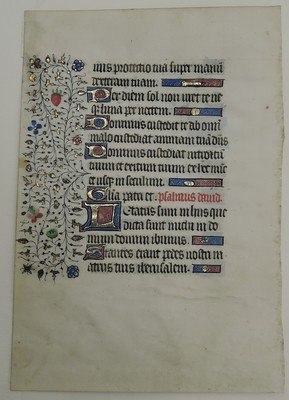 tuus protectio tua super manū
dexteram tuam.
Per diem sol non uret te ne
qʒ luna per noctem.
Dominus custodit te ab om̄i
malo custodiat animam tuā dn̄s
Dominus custodiat introitū
tuum et exitum tuum ex hoc nūc
et usqʒ in seculum.
Glīa patri et. psalmus david.
Letatus sum in hiis que
dicta sunt michi in do
mum domini ibimus.
Stantes erant pedes nostri in
atriis tuis iherusalem.